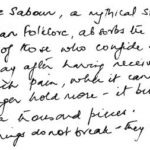 Sabour, a mythical s
an Folklore, absorbs the
of those who confide
ay after having receiv
ith pain, when it can
ger hold more - it bu
a thousand pieces.
ngs do not break - they